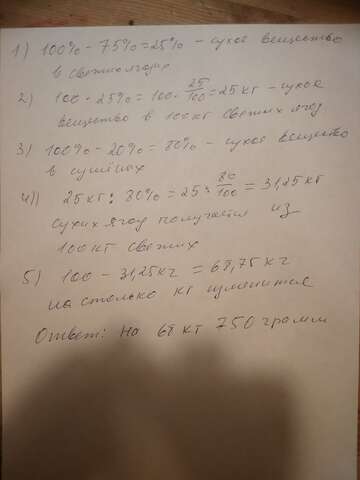 1) 100% - 75% = 25% - сухое вещество
в свежих ягодах
2) 100 · 25% = 100 · 25/100 = 25 кг - сухое
вещество в 100 кг свежих ягод
3) 100% - 20% = 80% - сухое вещество
в сушёных
4) 25 кг : 80% = 25 : 80/100 = 31,25 кг
сухих ягод получается из
100 кг свежих
5) 100 - 31,25 кг = 68,75 кг
на столько кг изменится
Ответ: на 68 кг 750 грамм